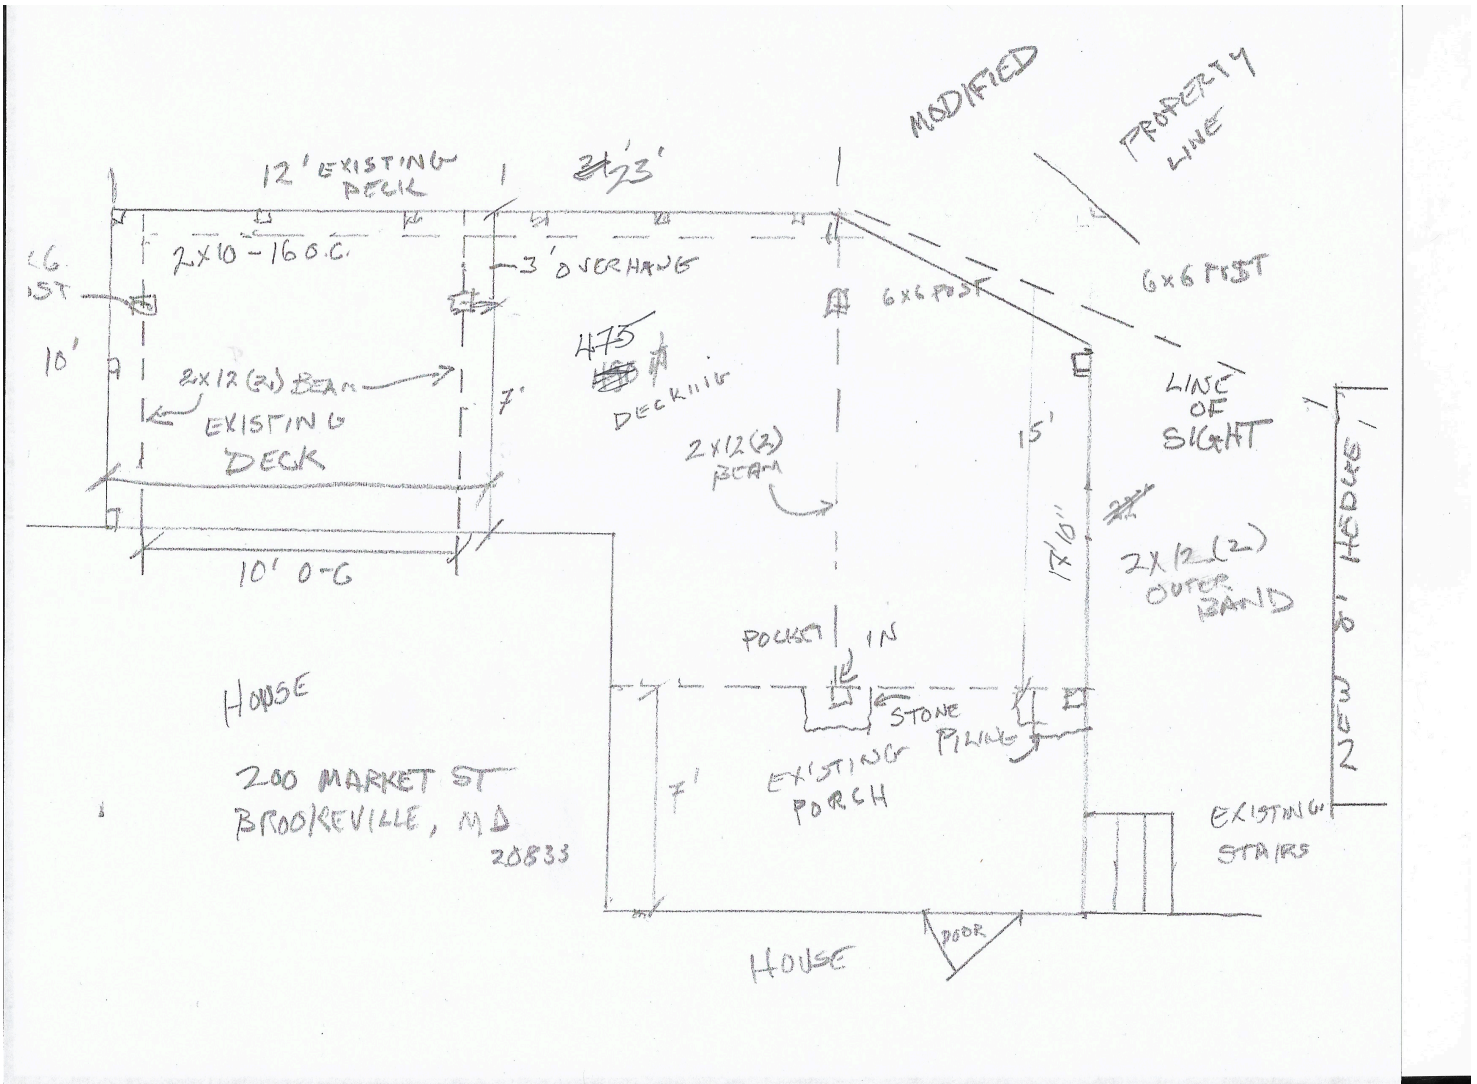 MODIFIED
PROPERTY
LINE
12' EXISTING
DECK
23'
2X10-16 O.C.
3' OVERHANG
6X6 POST
6X6 POST
10'
475
DECKING
2X12(2) BEAM
EXISTING
DECK
7'
2X12(2)
BEAM
15'
LINE
OF
SIGHT
17'10"
2X12(2)
OUTER
BAND
NEW 8' HEDGE
10' 0-6
POCKET IN
HOUSE
STONE
PILING
EXISTING
PORCH
7'
200 MARKET ST
BROOKEVILLE, MD
20833
EXISTING
STAIRS
DOOR
HOUSE